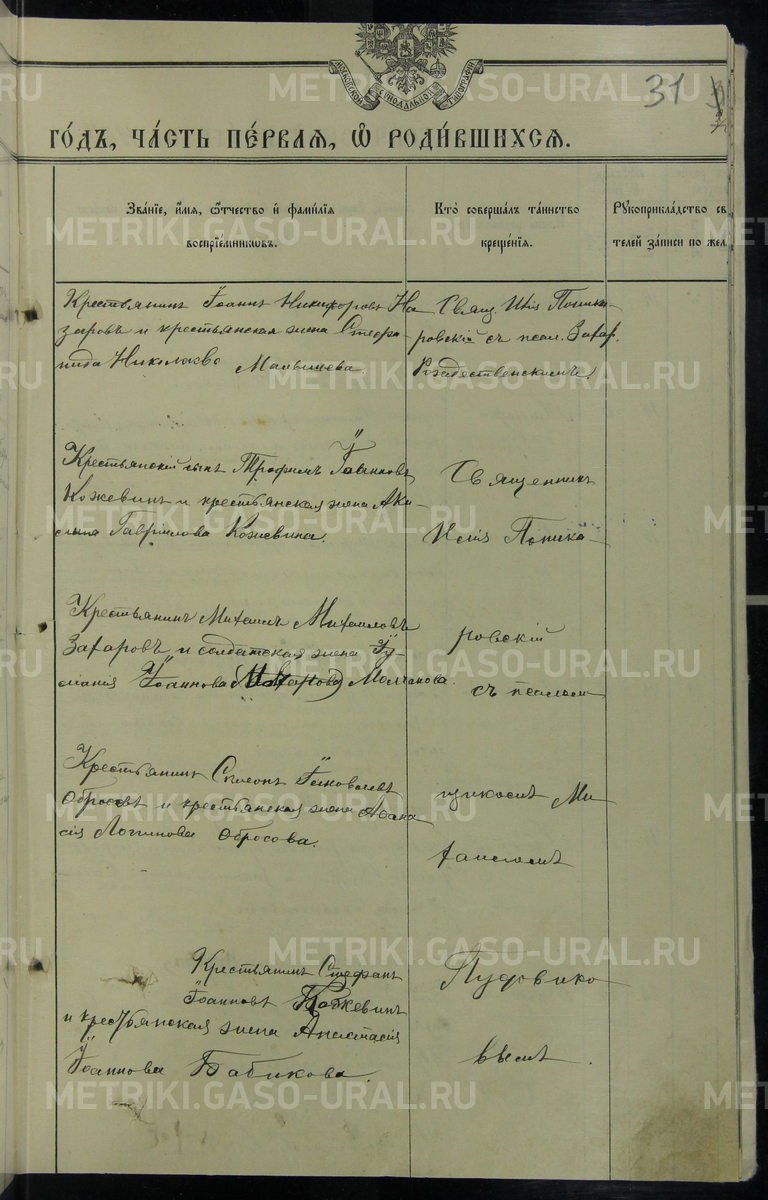 МОСКОВСКОЙ СѴНОДАЛЬНОЙ ТИПОГРАФІИ
31
ГО́ДЪ, ЧА́СТЬ ПЕ́РВАЯ, Ѡ҆ РОДИ́ВШИХСЯ.
Зва́нїе, и҆́мя, ѻ҆́тчество и҆ фами́лїя
воспрїе́мникѡвъ.
Кто̀ соверша́лъ та́инство
креще́нїя.
Рꙋкоприкла́дство св
телей за́писи по жел
Крестьянинъ Іоаннъ Никифоровъ На
заровъ и крестьянская жена Стефа
нида Николаева Малышева.
Свящ. Илія Поники-
ровскій съ псал. Захар.
Рождественскимъ.
Крестьянскій сынъ Трофимъ Іоанновъ
Кожевинъ и крестьянская жена Аки-
лина Гавріилова Кожевина.
Священникъ
Илія Поника-
Крестьянинъ Михаилъ Михаиловъ
Захаровъ и солдатская жена Іу-
ліанія Іоаннова Молчанова.
ровскій
съ псалом
Крестьянинъ Симеонъ Іаковлевъ
Обросовъ и крестьянская жена Афана
сія Логинова Обросова.
щикомъ Ми
хаиломъ
Крестьянинъ Стефанъ
Іоанновъ Кожевинъ
и крестьянская жена Анастасія
Іоаннова Бабикова.
Пудовико
вымъ.
METRIKI.GASO-URAL.RU